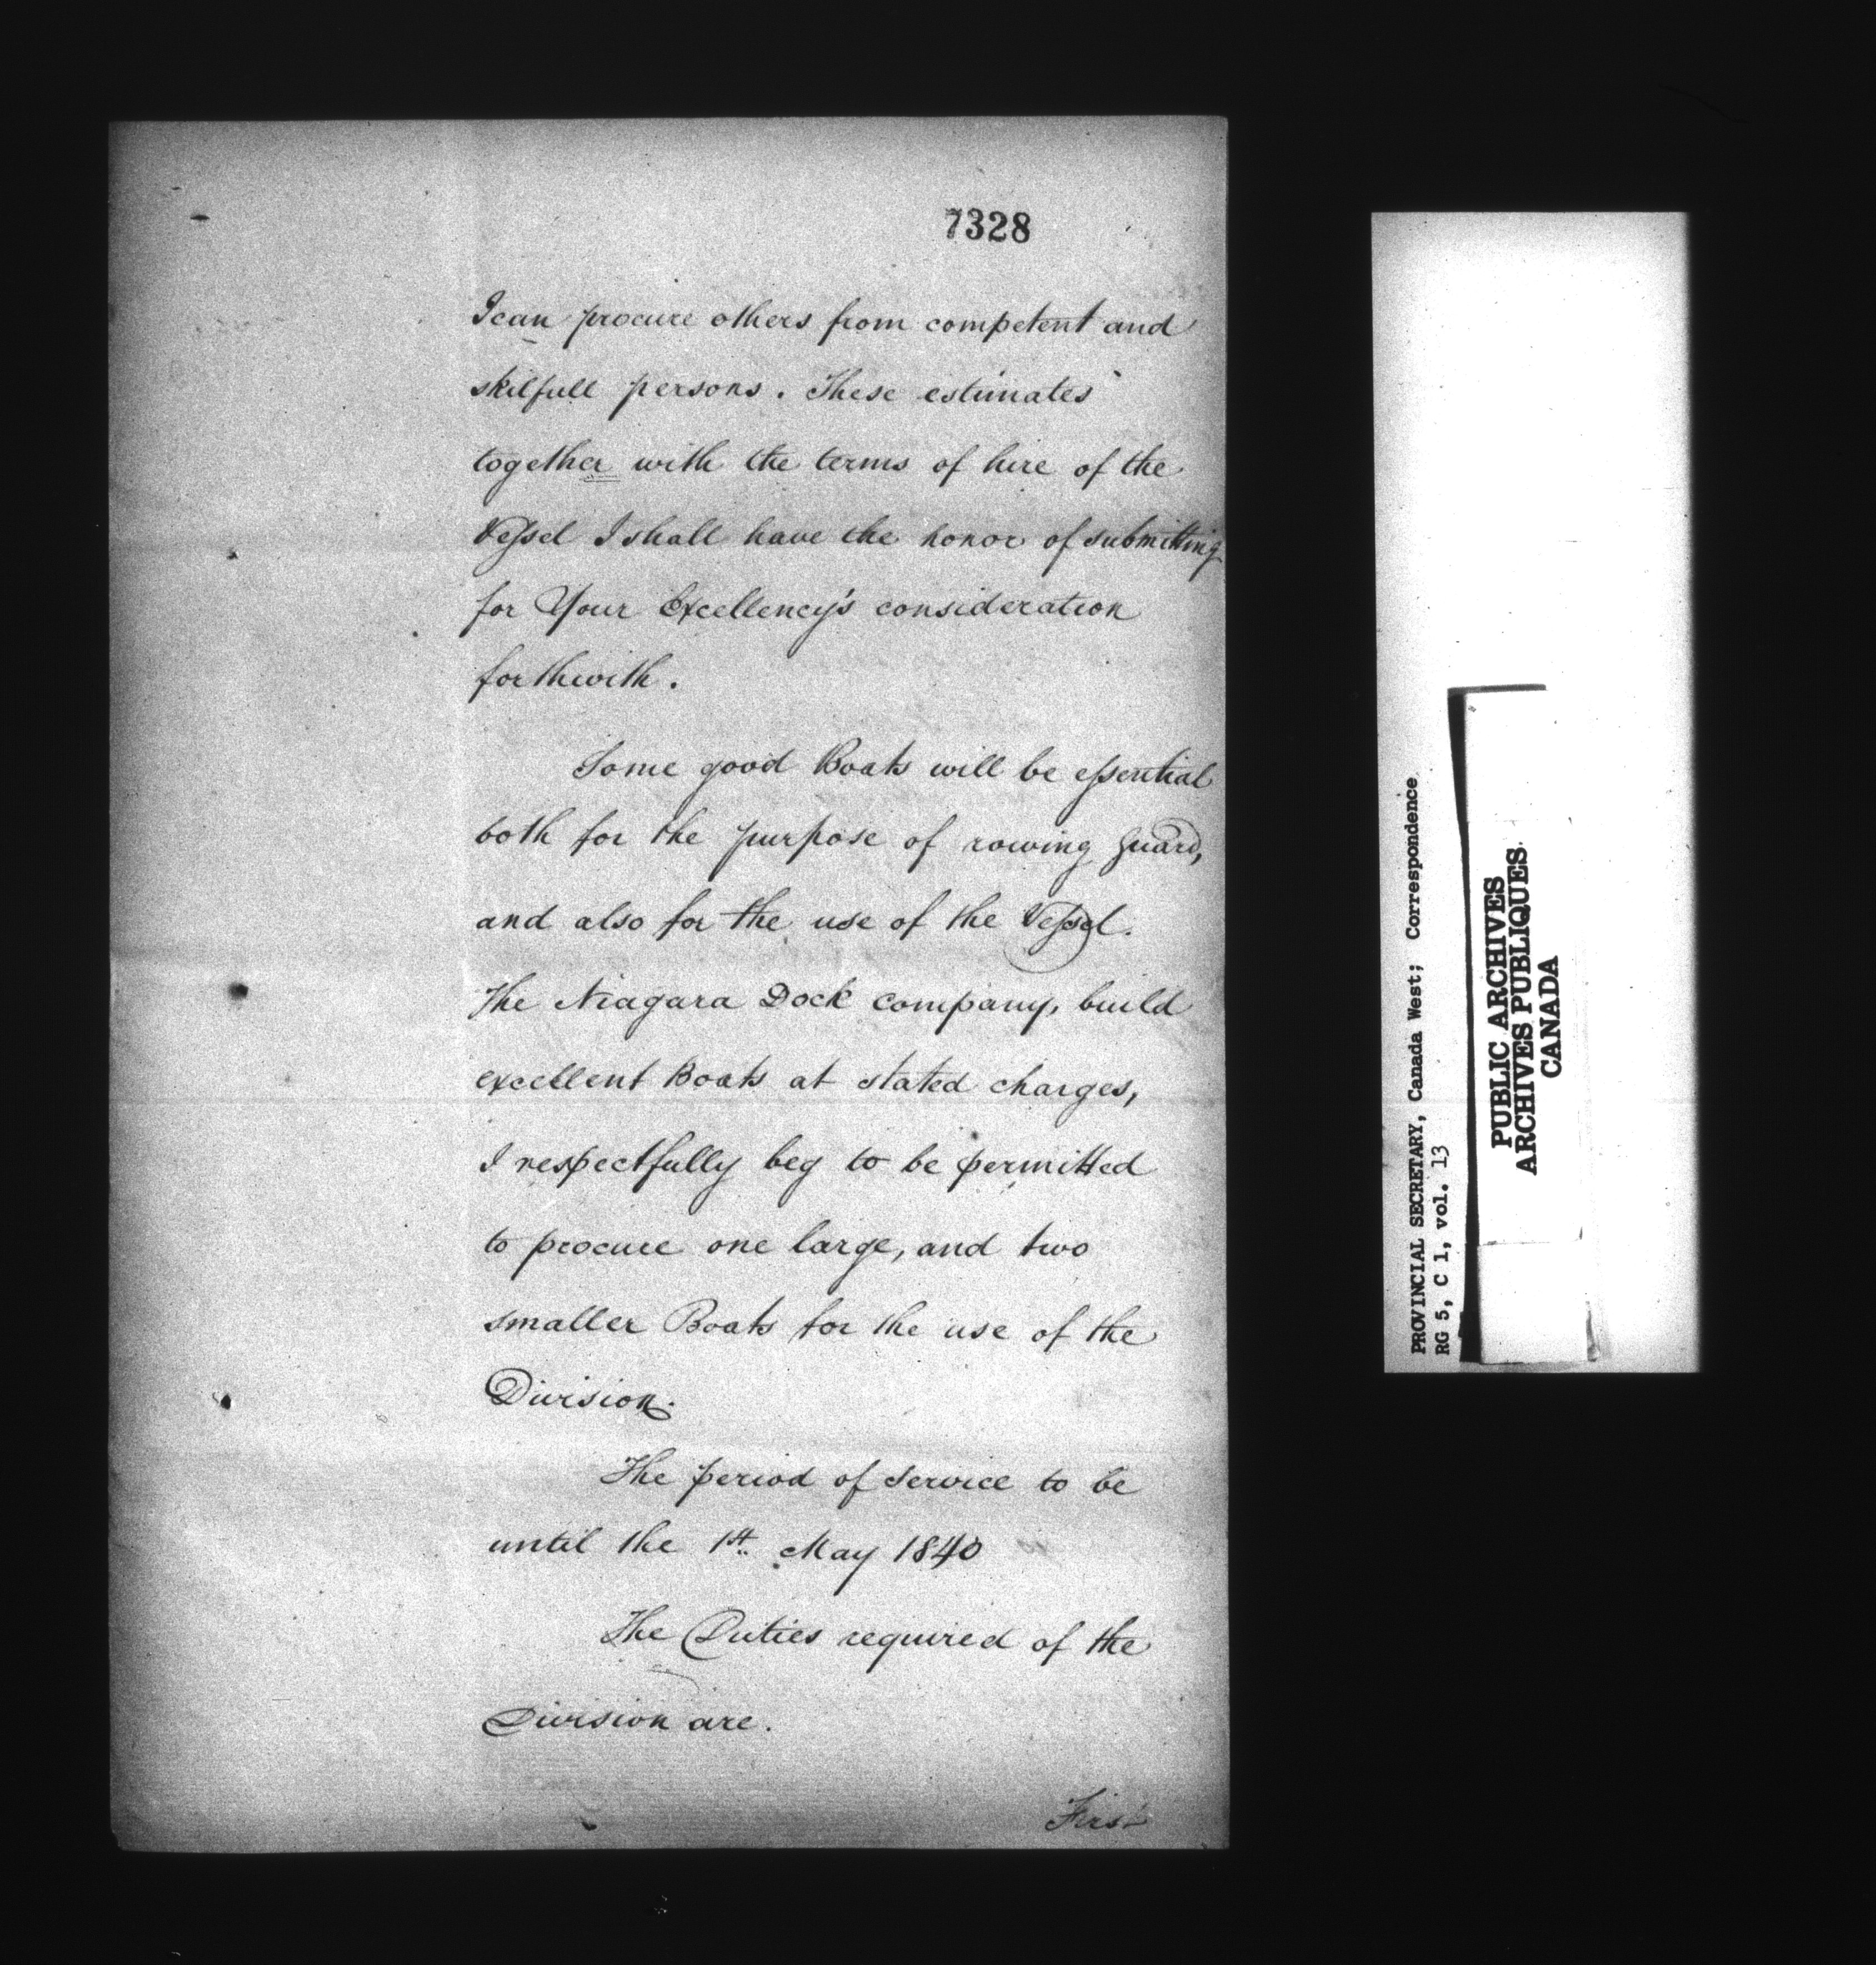 7328
I can procure others from competent and
skilfull persons. These estimates
together with the terms of hire of the
Vessel I shall have the honor of submitting
for Your Excellency's consideration
forthwith.
Some good Boats will be essential
both for the purpose of rowing guard,
and also for the use of the Vessel.
The Niagara Dock company, build
excellent Boats at stated charges,
I respectfully beg to be permitted
to procure one large, and two
smaller Boats for the use of the
Division.
The period of service to be
until the 1st. May 1840
The Duties required of the
Division are.
First
PROVINCIAL SECRETARY, Canada West; Correspondence
RG 5, C 1, vol. 13
PUBLIC ARCHIVES
ARCHIVES PUBLIQUES
CANADA